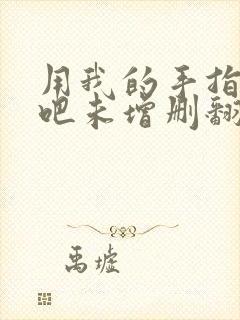 用我的手指
吧未增删翻
禹墟